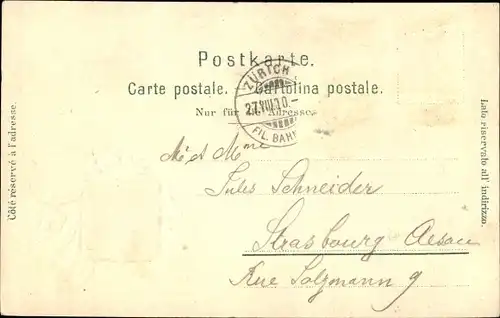 Postkarte.
Carte postale. — Cartolina postale.
Nur für die Adresse.
ZÜRICH
FIL. BAHN
Mr et Mme
Jules Schneider
Strasbourg Alsace
Rue Salzmann 9
Côté réservé à l'adresse.
Lato riservato all' indirizzo.